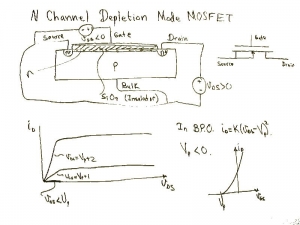 N Channel Depletion Mode MOSFET
Source
VGS<0
Gate
Drain
Gate
n
P
n
Bulk
SiO2 (Insulator)
VDS>0
Source
Drain
iD
vGS=Vp+2
vGS=Vp+1
vGS<Vp
VDS
In BPO. iD=K(vGS-Vp)².
Vp<0.
iD
Vp
vGS